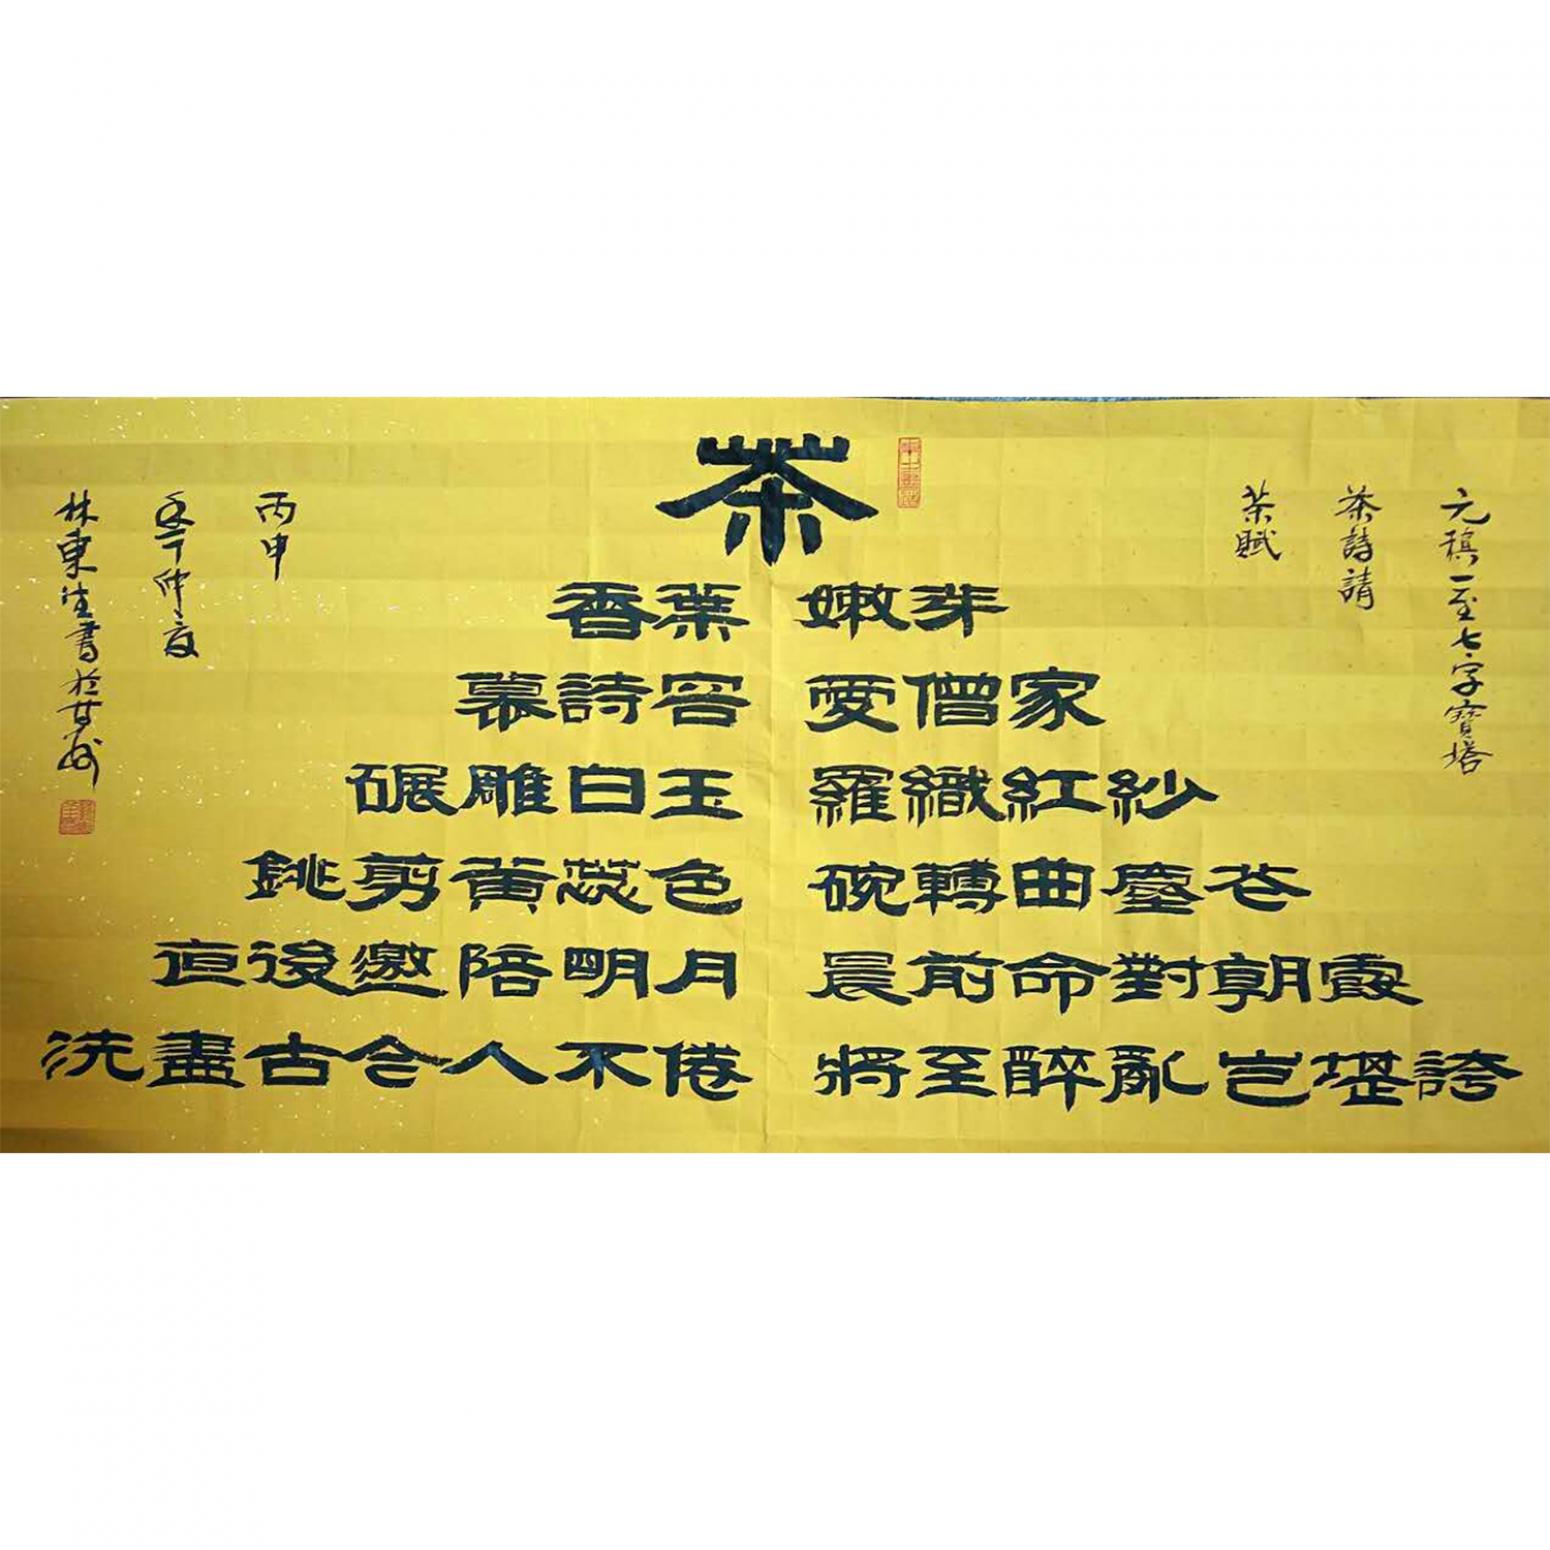 元稹一至七字寶塔
茶詩請
茶賦
茶
香葉 嫩芽
慕詩客 愛僧家
碾雕白玉 羅織紅紗
銚剪黃蕊色 碗轉曲塵花
亱後邀陪明月 晨前命對朝霞
洗盡古今人不倦 將至醉亂豈堪誇
丙申
年仲夏
林東生書於